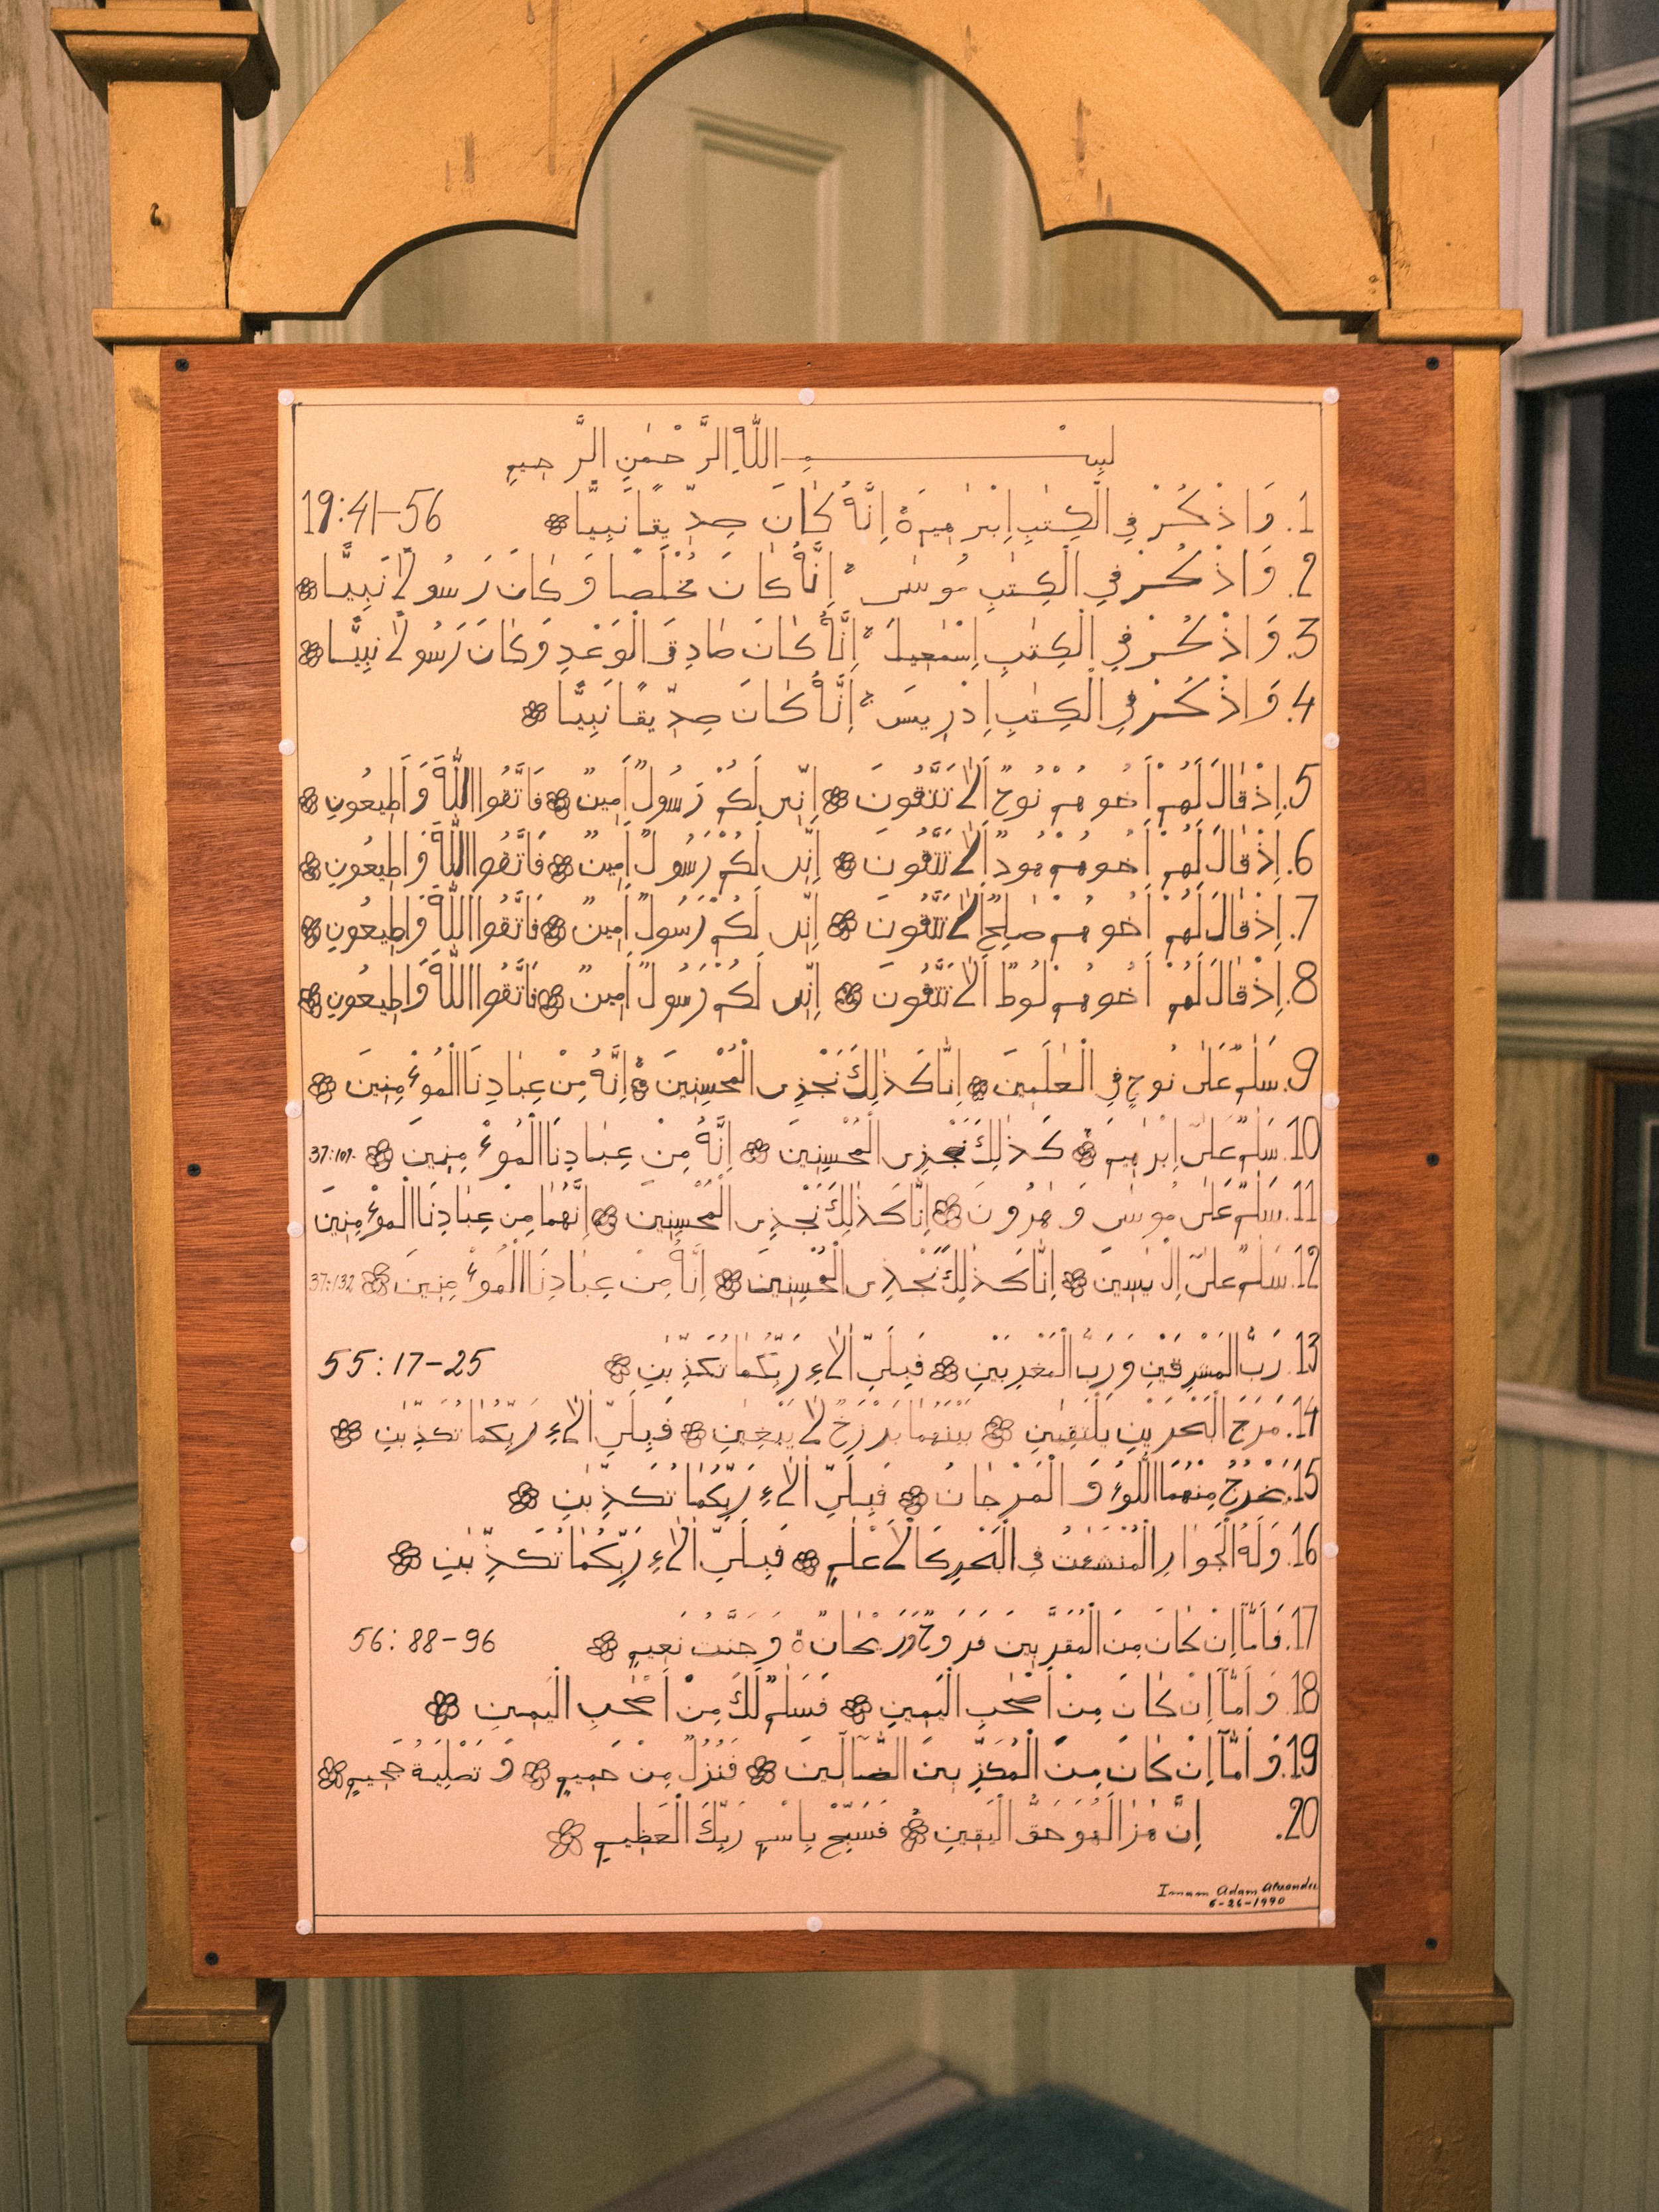 بِسْمِ اللّٰهِ الرَّحْمٰنِ الرَّحِيمِ
1. وَاذْكُرْ فِي الْكِتٰبِ اِبْرٰهِيمَ ۃ اِنَّهُ كَانَ صِدِّيقًا نَبِيًّا 19:41-56
2. وَاذْكُرْ فِي الْكِتٰبِ مُوسٰى اِنَّهُ كَانَ مُخْلَصًا وَكَانَ رَسُولًا نَبِيًّا
3. وَاذْكُرْ فِي الْكِتٰبِ اِسْمٰعِيلَ اِنَّهُ كَانَ صَادِقَ الْوَعْدِ وَكَانَ رَسُولًا نَبِيًّا
4. وَاذْكُرْ فِي الْكِتٰبِ اِدْرِيسَ اِنَّهُ كَانَ صِدِّيقًا نَبِيًّا
5. اِذْ قَالَ لَهُمْ اَخُوهُمْ نُوحٌ اَلَا تَتَّقُونَ اِنِّى لَكُمْ رَسُولٌ اَمِينٌ فَاتَّقُوا اللّٰهَ وَاَطِيعُونِ
6. اِذْ قَالَ لَهُمْ اَخُوهُمْ هُودٌ اَلَا تَتَّقُونَ اِنِّى لَكُمْ رَسُولٌ اَمِينٌ فَاتَّقُوا اللّٰهَ وَاَطِيعُونِ
7. اِذْ قَالَ لَهُمْ اَخُوهُمْ صٰلِحٌ اَلَا تَتَّقُونَ اِنِّى لَكُمْ رَسُولٌ اَمِينٌ فَاتَّقُوا اللّٰهَ وَاَطِيعُونِ
8. اِذْ قَالَ لَهُمْ اَخُوهُمْ لُوطٌ اَلَا تَتَّقُونَ اِنِّى لَكُمْ رَسُولٌ اَمِينٌ فَاتَّقُوا اللّٰهَ وَاَطِيعُونِ
9. سَلٰمٌ عَلٰى نُوحٍ فِي الْعٰلَمِينَ اِنَّا كَذٰلِكَ نَجْذِى الْمُحْسِنِينَ اِنَّهُ مِنْ عِبَادِنَا الْمُوءْمِنِينَ
10. سَلٰمٌ عَلٰى اِبْرٰهِيمَ كَذٰلِكَ نَجْذِى الْمُحْسِنِينَ اِنَّهُ مِنْ عِبَادِنَا الْمُوءْمِنِينَ 37:109-
11. سَلٰمٌ عَلٰى مُوسٰى وَهٰرُونَ اِنَّا كَذٰلِكَ نَجْذِى الْمُحْسِنِينَ اِنَّهُمَا مِنْ عِبَادِنَا الْمُوءْمِنِينَ
12. سَلٰمٌ عَلٰى اِلْ يَسِينَ اِنَّا كَذٰلِكَ نَجْذِى الْمُحْسِنِينَ اِنَّهُ مِنْ عِبَادِنَا الْمُوءْمِنِينَ 37:132
13. رَبُّ الْمَشْرِقَيْنِ وَرَبُّ الْمَغْرِبَيْنِ فَبِاَيِّ اٰلَاءِ رَبِّكُمَا تُكَذِّبٰنِ 55:17-25
14. مَرَجَ الْبَحْرَيْنِ يَلْتَقِيٰنِ بَيْنَهُمَا بَرْزَخٌ لَا يَبْغِيٰنِ فَبِاَيِّ اٰلَاءِ رَبِّكُمَا تُكَذِّبٰنِ
15. يَخْرُجُ مِنْهُمَا اللُّوءُ وَالْمَرْجَانُ فَبِاَيِّ اٰلَاءِ رَبِّكُمَا تُكَذِّبٰنِ
16. وَلَهُ الْجَوَارِ الْمُنْشَئٰتُ فِى الْبَحْرِ كَالْاَعْلٰمِ فَبِاَيِّ اٰلَاءِ رَبِّكُمَا تُكَذِّبٰنِ
17. فَاَمَّا اِنْ كَانَ مِنَ الْمُقَرَّبِينَ فَرَوْحٌ وَّرَيْحَانٌ ۃ وَجَنَّتُ نَعِيمٍ 56:88-96
18. وَاَمَّا اِنْ كَانَ مِنْ اَصْحٰبِ الْيَمِينِ فَسَلٰمٌ لَكَ مِنْ اَصْحٰبِ الْيَمِينِ
19. وَاَمَّا اِنْ كَانَ مِنَ الْمُكَذِّبِينَ الضَّالِّينَ فَنُزُلٌ مِنْ حَمِيمٍ وَتَصْلِيَةُ جَحِيمٍ
20. اِنَّ هٰذَا لَهُوَ حَقُّ الْيَقِينِ فَسَبِّحْ بِاسْمِ رَبِّكَ الْعَظِيمِ
Imam Adam
6-26-1990